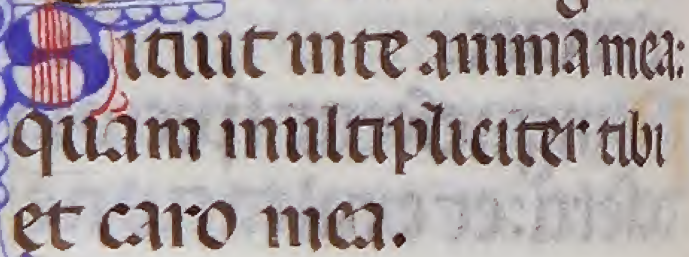 Sitiuit in te animā mea:
quam multipliciter tibi
et caro mea.